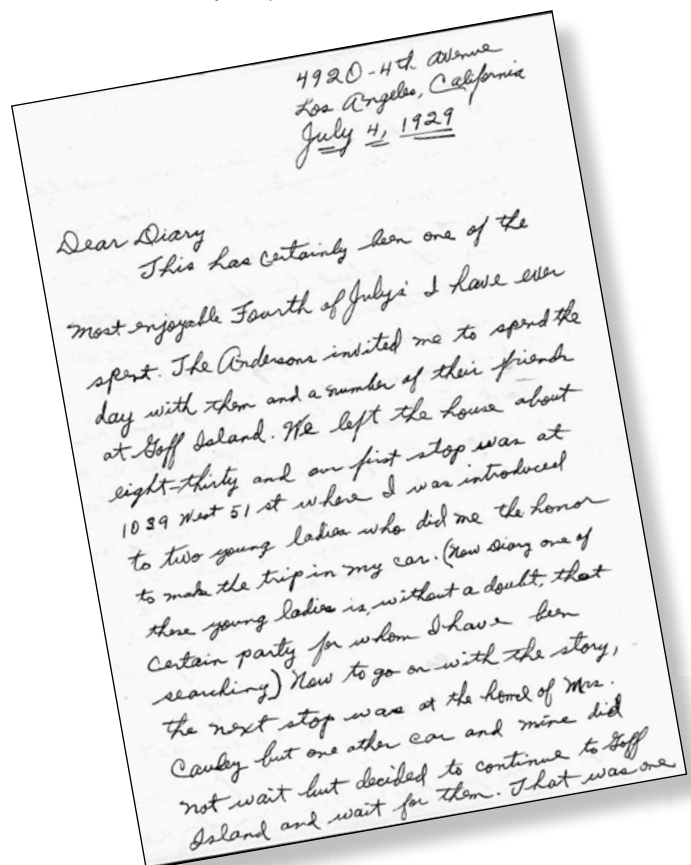 4920-4th Avenue
Los Angeles, California
July 4, 1929
Dear Diary
This has certainly been one of the
most enjoyable Fourth of July's I have ever
spent. The Andersons invited me to spend the
day with them and a number of their friends
at Goff Island. We left the house about
eight-thirty and our first stop was at
1039 West 51 st where I was introduced
to two young ladies who did me the honor
to make the trip in my car. (Now Diary one of
these young ladies is, without a doubt, that
certain party for whom I have been
searching) Now to go on with the story,
the next stop was at the home of Mrs.
but one other car and mine did
not wait but decided to continue to Goff
Island and wait for them. That was one